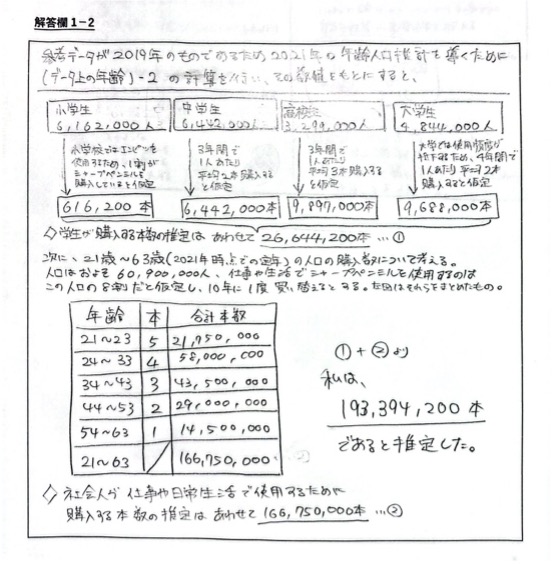 解答欄1-2
参考データが2019年のものであるため2021年の年齢人口推計を導くために
(データ上の年齢)-2 の計算を行い、その数値をもとにすると、
小学生
6,162,000人
中学生
6,442,000人
高校生
3,299,000人
大学生
4,844,000人
小学校ではエンピツを
使用するため、1割が
シャープペンシルを
購入していると仮定
3年間で
1人あたり
平均2本購入する
と仮定
3年間で
1人あたり
平均3本購入する
と仮定
大学では使用頻度が
低下するため、4年間で
1人あたり平均2本
購入すると仮定
616,200本
6,442,000本
9,897,000本
9,688,000本
◇学生が購入する本数の推定は あわせて 26,644,200本 …①
次に、21歳~63歳(2021年時点での定年)の人口の購入数について考える。
人口はおよそ 60,900,000人、仕事や生活でシャープペンシルを使用するのは
この人口の8割だと仮定し、10年に1度 買い替えるとする。左図はそれらをまとめたもの。
年齢 本 合計本数
21~23 5 21,750,000
24~33 4 58,000,000
34~43 3 43,500,000
44~53 2 29,000,000
54~63 1 14,500,000
21~63 166,750,000
①+②より
私は、
193,394,200本
であると推定した。
◇社会人が仕事や日常生活で使用するために
購入する本数の推定は あわせて 166,750,000本 …②